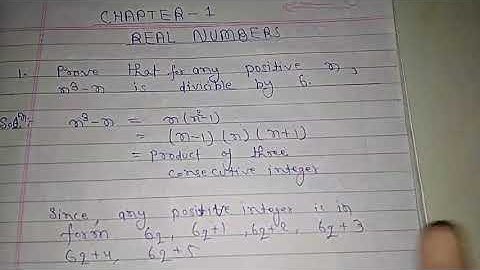 CHAPTER-1
REAL NUMBERS
1. Prove that for any positive n,
n³-n is divicible by 6.
Solⁿ:- n³-n = n(n²-1)
= (n-1) (n) (n+1)
= Product of three
consecutive integer
Since, any positive integer is in
form 6q, 6q+1, 6q+2, 6q+3
6q+4, 6q+5